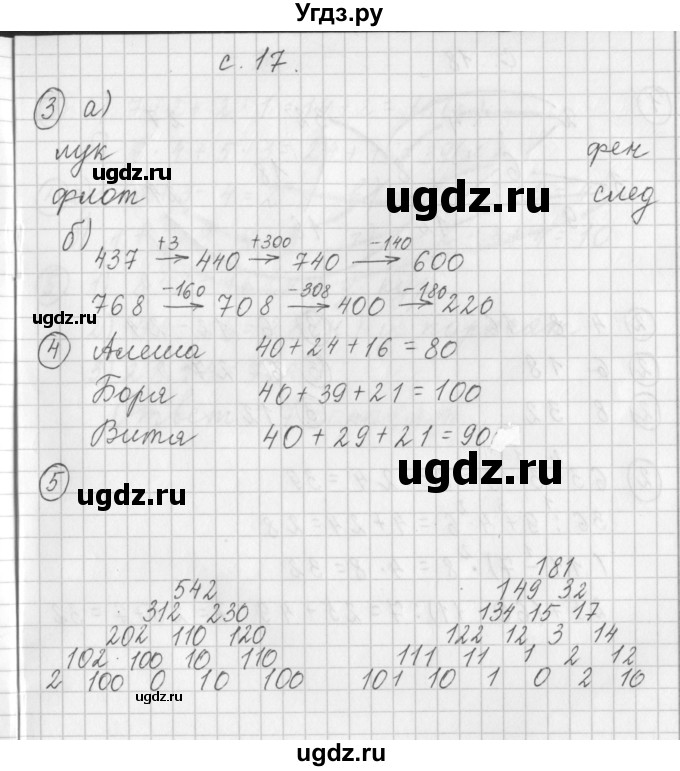 Угдз.ру
с. 17.
③ а)
лук фен
ugdz.ru ugdz.ru
флот след
б) 437 +3→ 440 +300→ 740 −140→ 600
ugdz.ru
768 −160→ 708 −308→ 400 −180→ 220
④ Алеша 40 + 24 + 16 = 80
Боря 40 + 39 + 21 = 100
Витя 40 + 29 + 21 = 90
⑤ ugdz.ru ugdz.ru
181
542 149 32
312 230 134 15 17
202 110 120 122 12 3 14
102 100 10 110 111 11 1 2 12
2 100 0 10 100 101 10 1 0 2 10
ugdz.ru
ugdz.ru